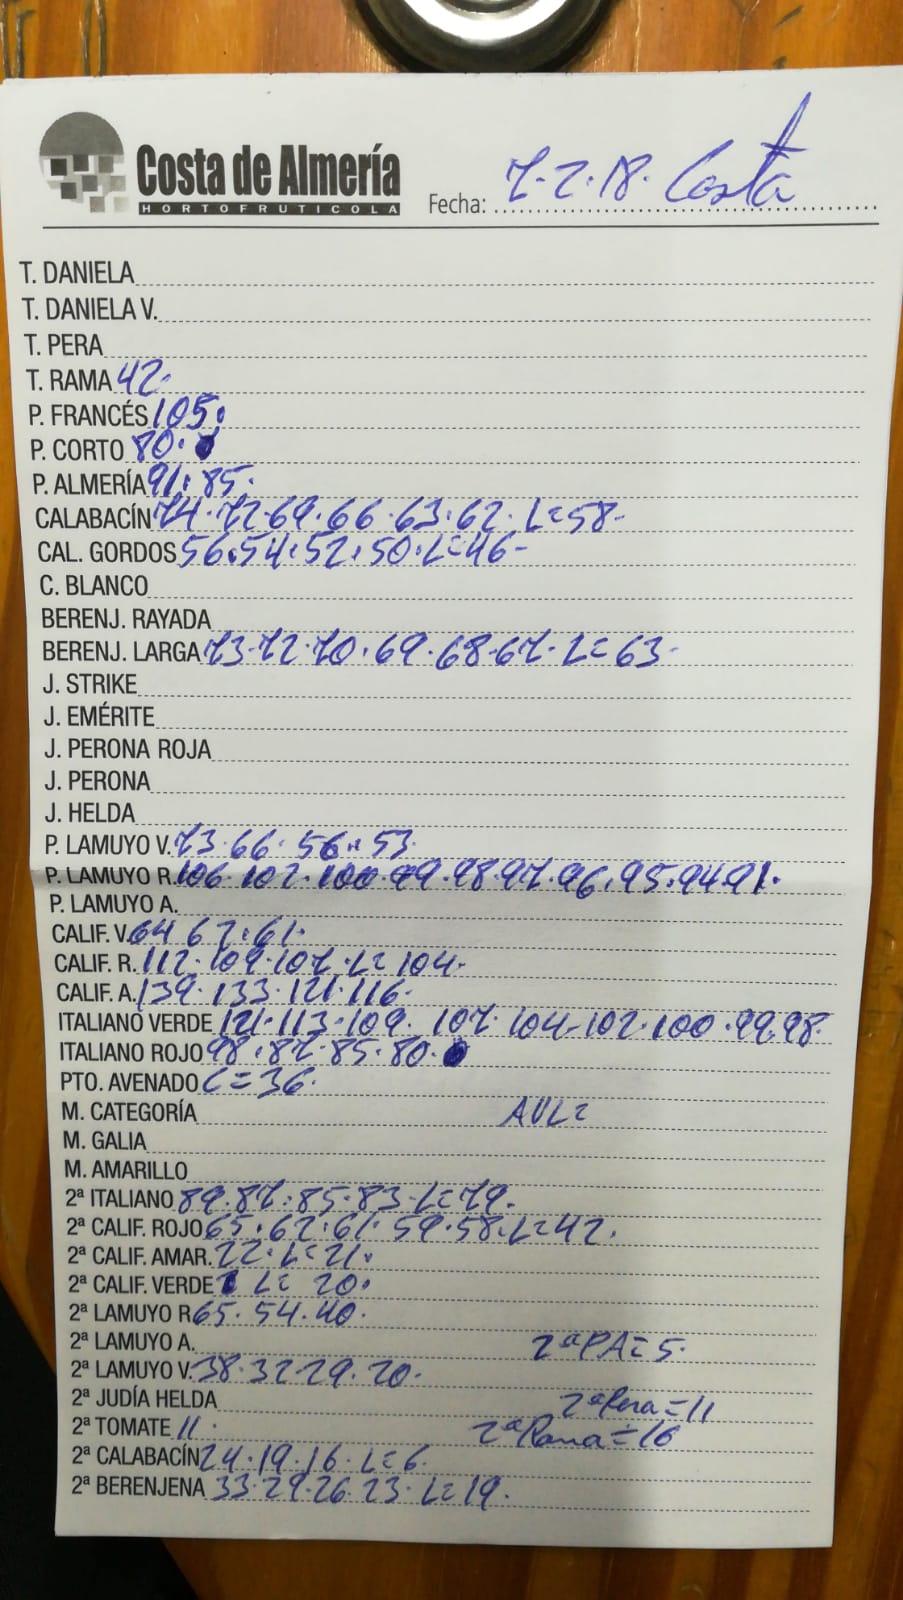 Costa de Almería
HORTOFRUTICOLA
Fecha: 7.2.18. Costa
T. DANIELA
T. DANIELA V.
T. PERA
T. RAMA 42.
P. FRANCÉS 105.
P. CORTO 80.
P. ALMERÍA 91.85.
CALABACÍN 74.72.69.66.63.62. L=58-
CAL. GORDOS 56.54.52.50.L=46-
C. BLANCO
BERENJ. RAYADA
BERENJ. LARGA 73.72.70.69.68.67. L=63-
J. STRIKE
J. EMÉRITE
J. PERONA ROJA
J. PERONA
J. HELDA
P. LAMUYO V. 73.66.56.53.
P. LAMUYO R. 106.102.100.99.98.97.96.95.94.91.
P. LAMUYO A.
CALIF. V. 64 62.61.
CALIF. R. 112.109.107.L=104-
CALIF. A. 139.133.121.116-
ITALIANO VERDE 121.113.109. 107. 104-102.100.99.98.
ITALIANO ROJO 98.87.85.80.
PTO. AVENADO L=36.
M. CATEGORÍA AVL=
M. GALIA
M. AMARILLO
2ª ITALIANO 89.87.85.83-L=79.
2ª CALIF. ROJO 65.62.61.59.58.L=42.
2ª CALIF. AMAR. 22.L=21.
2ª CALIF. VERDE L=20.
2ª LAMUYO R 65.54.40.
2ª LAMUYO A. 2ªPA=5.
2ª LAMUYO V. 38.32.29.20.
2ª JUDÍA HELDA 2ªPera=11
2ª TOMATE 11. 2ªRama=16
2ª CALABACÍN 24.19.16.L=6.
2ª BERENJENA 33.29.26.23.L=19.